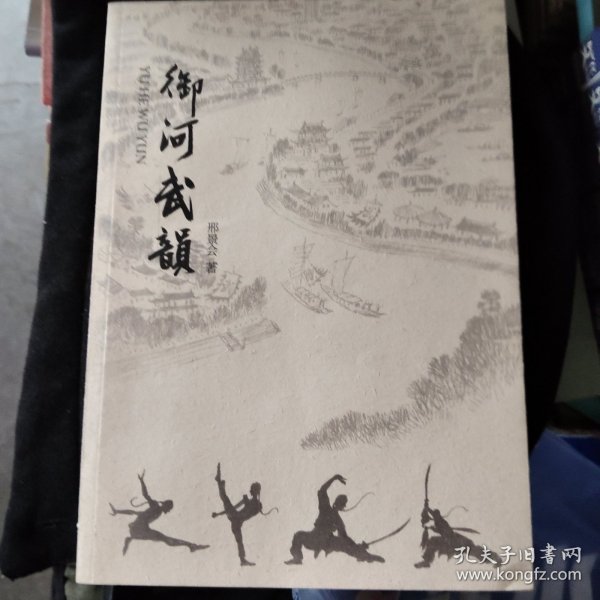 御河武韻
YUHEWUYUN
邢景会 著
孔夫子旧书网
www.kongfz.com